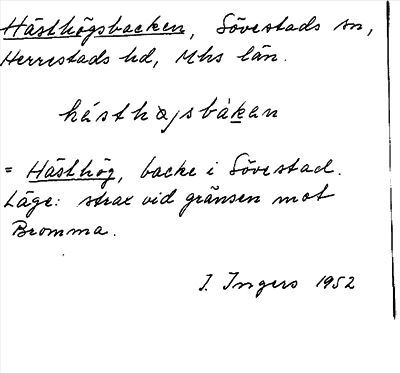 Hästhögsbacken, Sövestads sn,
Herrestads hd, Mhs län.
hästhøjsbakan
= Hästhög, backe i Sövestad.
Läge: strax vid gränsen mot
Bromma.
I. Ingers 1952